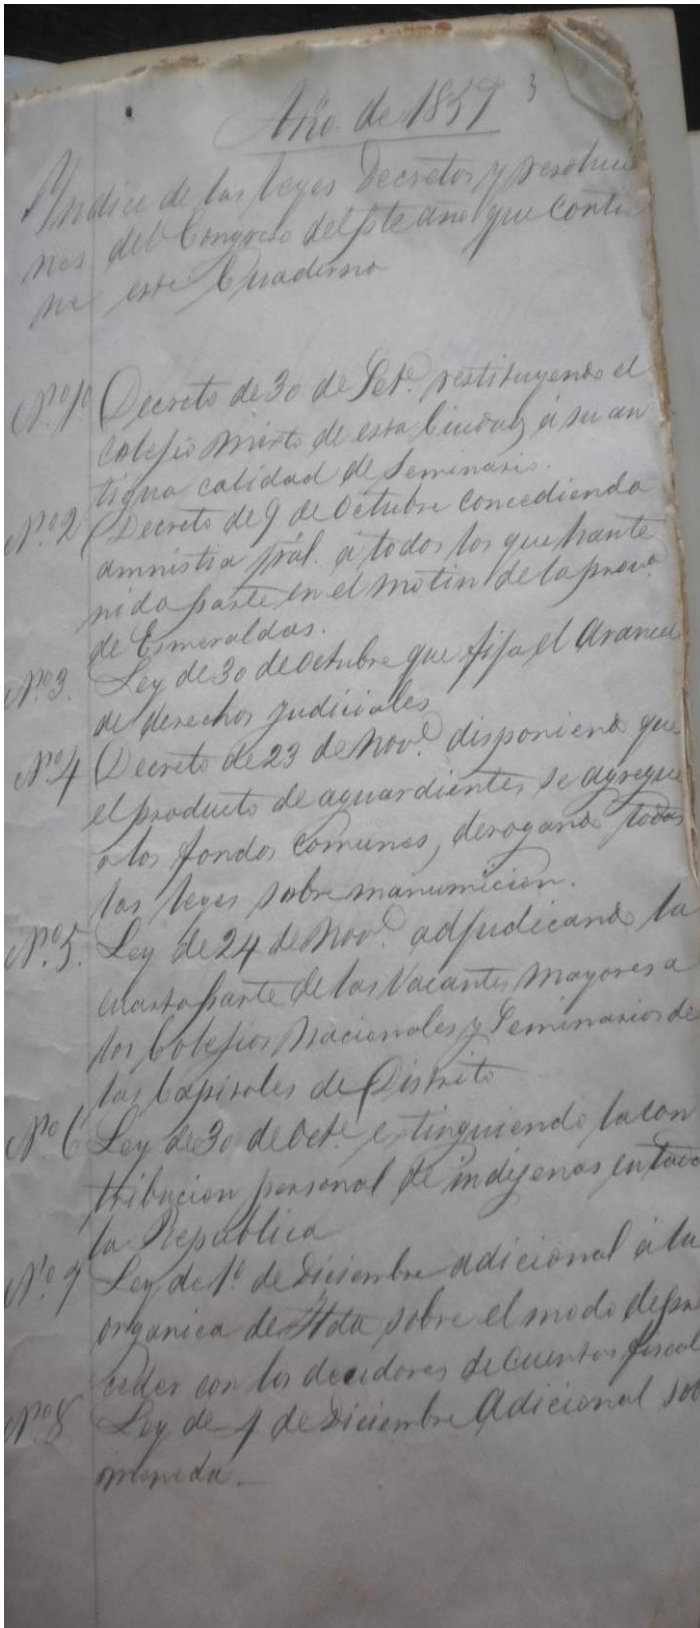 Año de 1857 3
Yndice de las leyes Decretos y resolucio
nes del Congreso del pte año que contie
ne este Cuaderno
Nº 1º Decreto de 30 de Set.e restituyendo el
colejio misto de esta Ciudad á su an
tigua calidad de Seminario.
Nº 2 Decreto de 9 de Octubre concediendo
amnistia gral. á todos los que han te
nido parte en el motin de la prova
de Esmeraldas.
Nº 3. Ley de 30 de Octubre que fija el Arancel
de derechos judiciales
Nº 4 Decreto de 23 de Nove. disponiendo que
el producto de aguardientes se agregue
a los fondos comunes, derogando todas
las leyes sobre manumicion.
Nº 5. Ley de 24 de Nove. adjudicando la
cuarta parte de las Vacantes mayores a
los Colejios Nacionales y Seminarios de
las Capitales de Distrito
Nº 6 Ley de 30 de Octe. extinguiendo la con
tribucion personal de indijenas en toda
la Republica
Nº 7 Ley de 1º de Diciembre adicional á la
organica de Hda sobre el modo de pro
ceder con los deudores de cuentas fiscal
Nº 8 Ley de 1 de Diciembre Adicional sob
moneda.